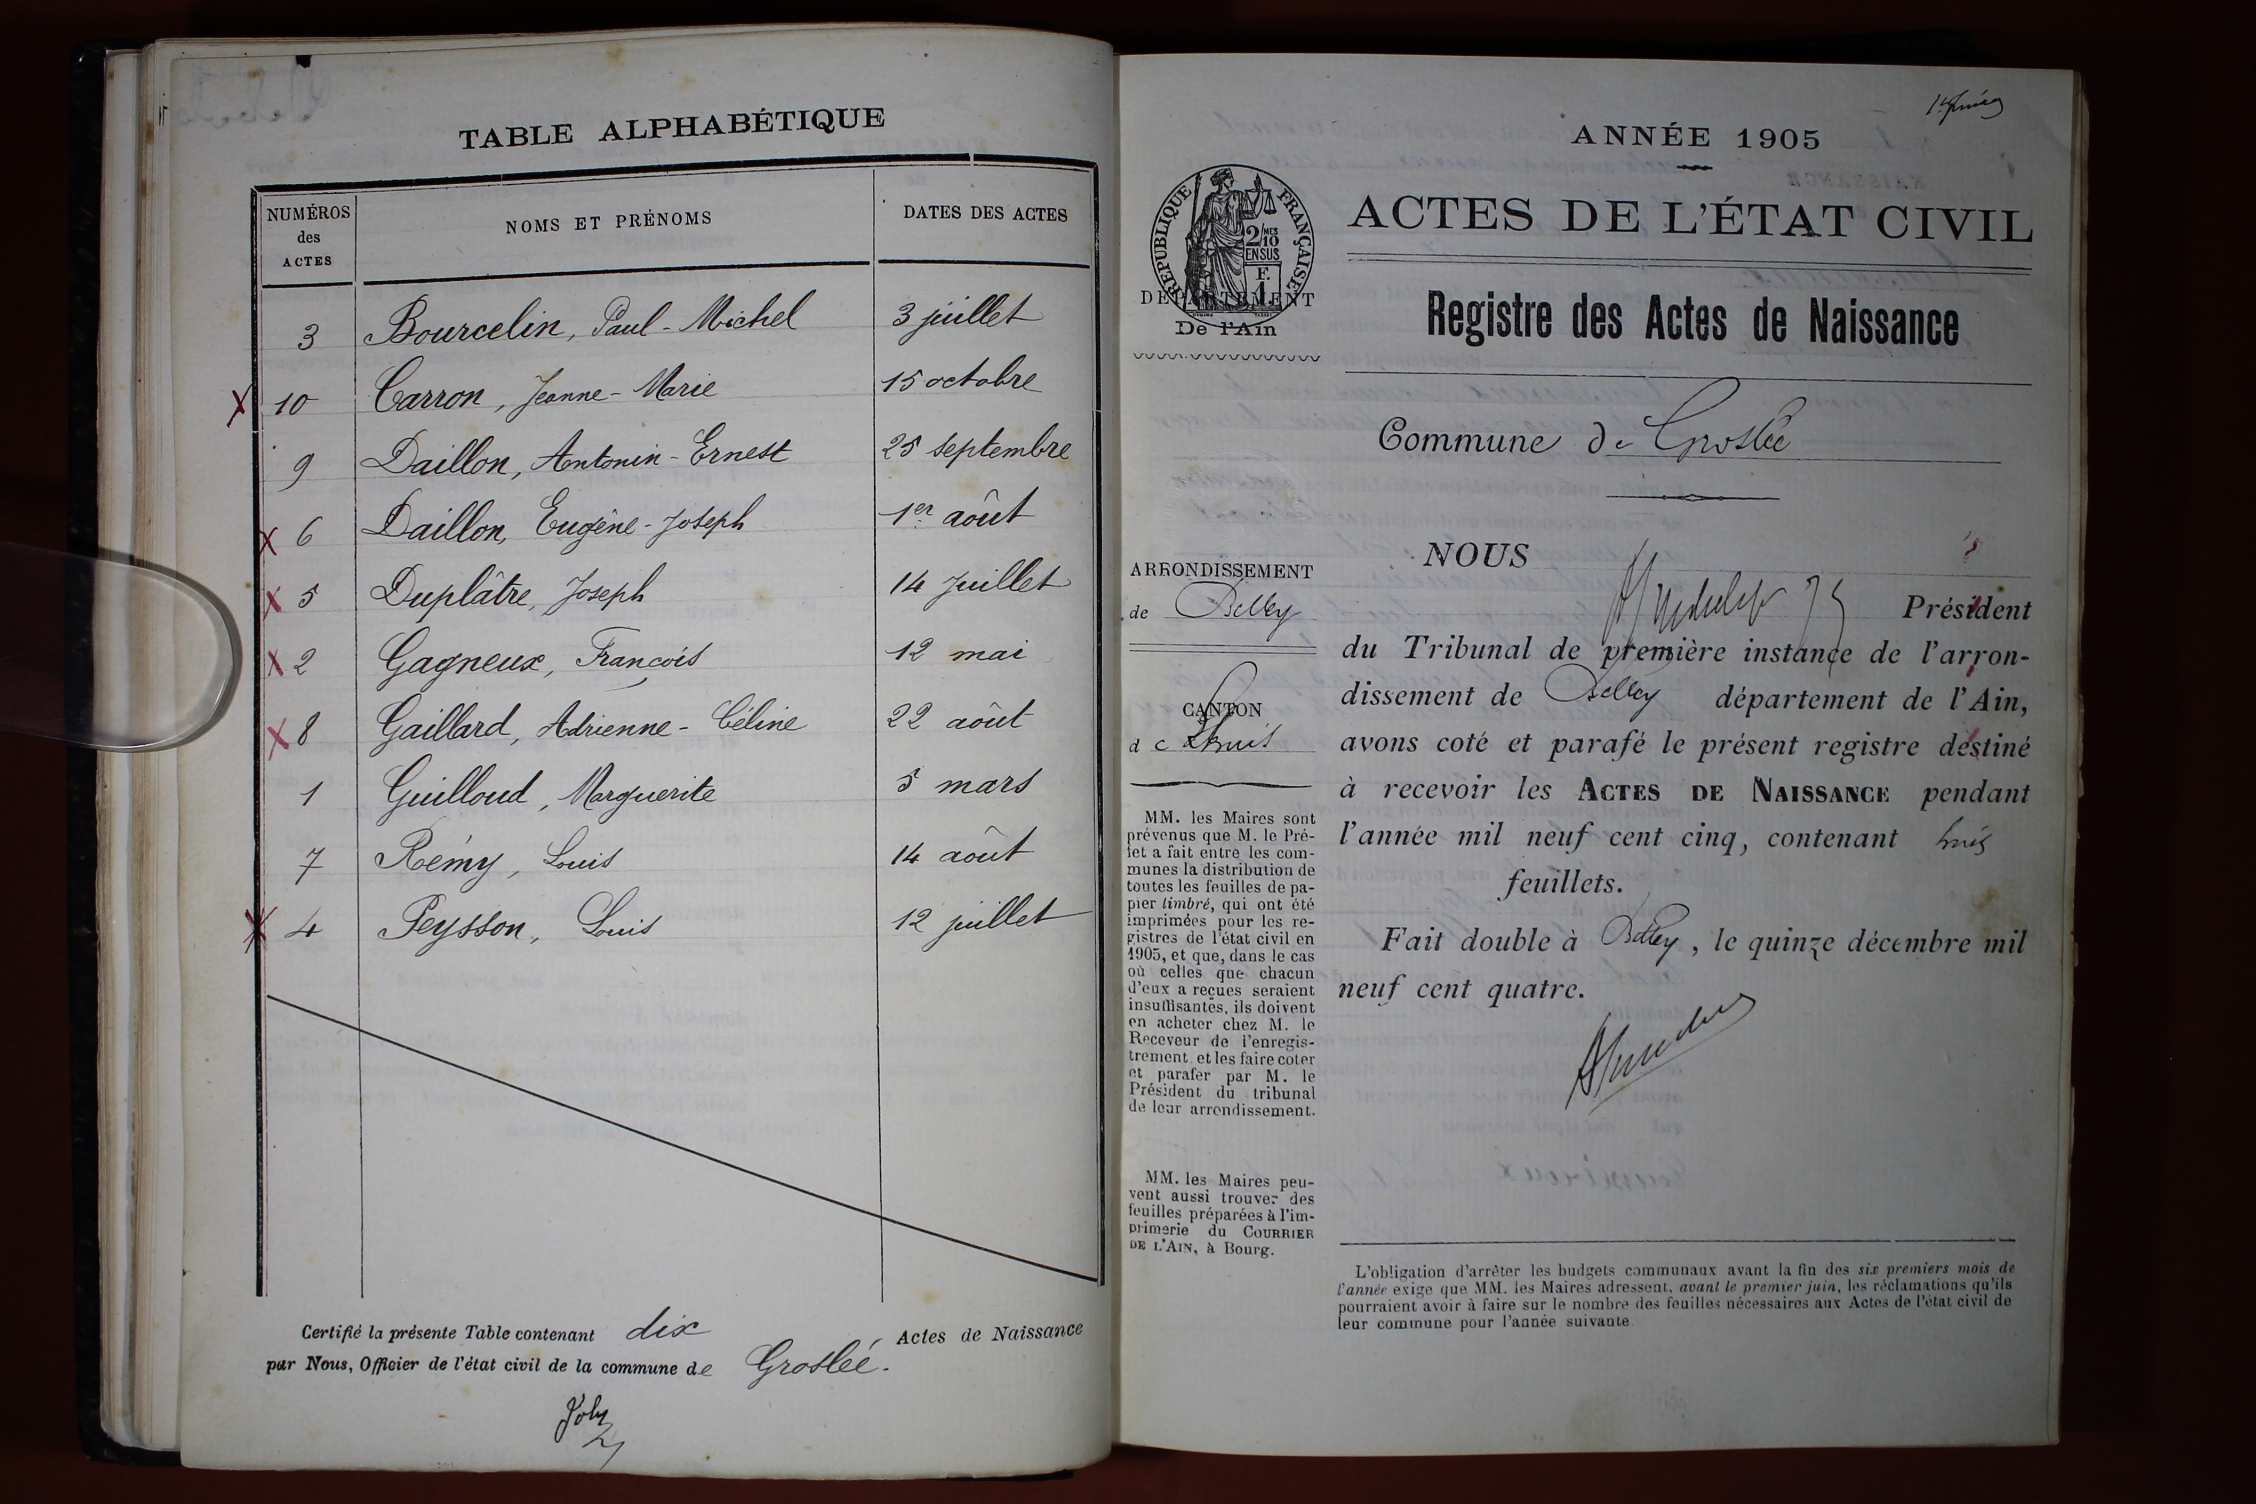 TABLE ALPHABÉTIQUE
NUMÉROS
des
ACTES
NOMS ET PRÉNOMS
DATES DES ACTES
3 Bourcelin, Paul-Michel 3 juillet
X 10 Carron, Jeanne-Marie 15 octobre
9 Daillon, Antonin-Ernest 25 septembre
X 6 Daillon, Eugène-Joseph 1er août
X 5 Duplâtre, Joseph 14 Juillet
X 2 Gagneux, François 12 mai
X 8 Gaillard, Adrienne-Céline 22 août
1 Guilloud, Marguerite 5 mars
7 Rémy, Louis 14 août
X 4 Peysson, Louis 12 juillet
Certifié la présente Table contenant dix Actes de Naissance
par Nous, Officier de l'état civil de la commune de Groslée.
Joly
ANNÉE 1905
RÉPUBLIQUE FRANÇAISE
2/10 MES
EN SUS
F.
1
DÉPARTEMENT
De l'Ain
ACTES DE L'ÉTAT CIVIL
Registre des Actes de Naissance
Commune de Groslée
ARRONDISSEMENT
de Belley
CANTON
de Lhuis
MM. les Maires sont
prévenus que M. le Pré-
fet a fait entre les com-
munes la distribution de
toutes les feuilles de pa-
pier timbré, qui ont été
imprimées pour les re-
gistres de l'état civil en
1905, et que, dans le cas
où celles que chacun
d'eux a reçues seraient
insuffisantes, ils doivent
en acheter chez M. le
Receveur de l'enregis-
trement et les faire coter
et parafer par M. le
Président du tribunal
de leur arrondissement.
MM. les Maires peu-
vent aussi trouver des
feuilles préparées à l'im-
primerie du COURRIER
DE L'AIN, à Bourg.
NOUS
Président
du Tribunal de première instance de l'arron-
dissement de Belley département de l'Ain,
avons coté et parafé le présent registre destiné
à recevoir les ACTES DE NAISSANCE pendant
l'année mil neuf cent cinq, contenant huit
feuillets.
Fait double à Belley, le quinze décembre mil
neuf cent quatre.
L'obligation d'arrêter les budgets communaux avant la fin des six premiers mois de
l'année exige que MM. les Maires adressent, avant le premier juin, les réclamations qu'ils
pourraient avoir à faire sur le nombre des feuilles nécessaires aux Actes de l'état civil de
leur commune pour l'année suivante.